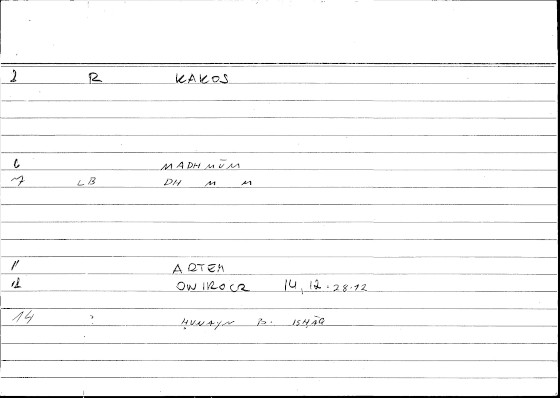 2 R KAKOS
6 MADHMŪM
7 LB DH M M
11 ARTEM
12 ONIROCR 14, 12-28.12
14 ? ḤUNAYN B. ISḤĀQ